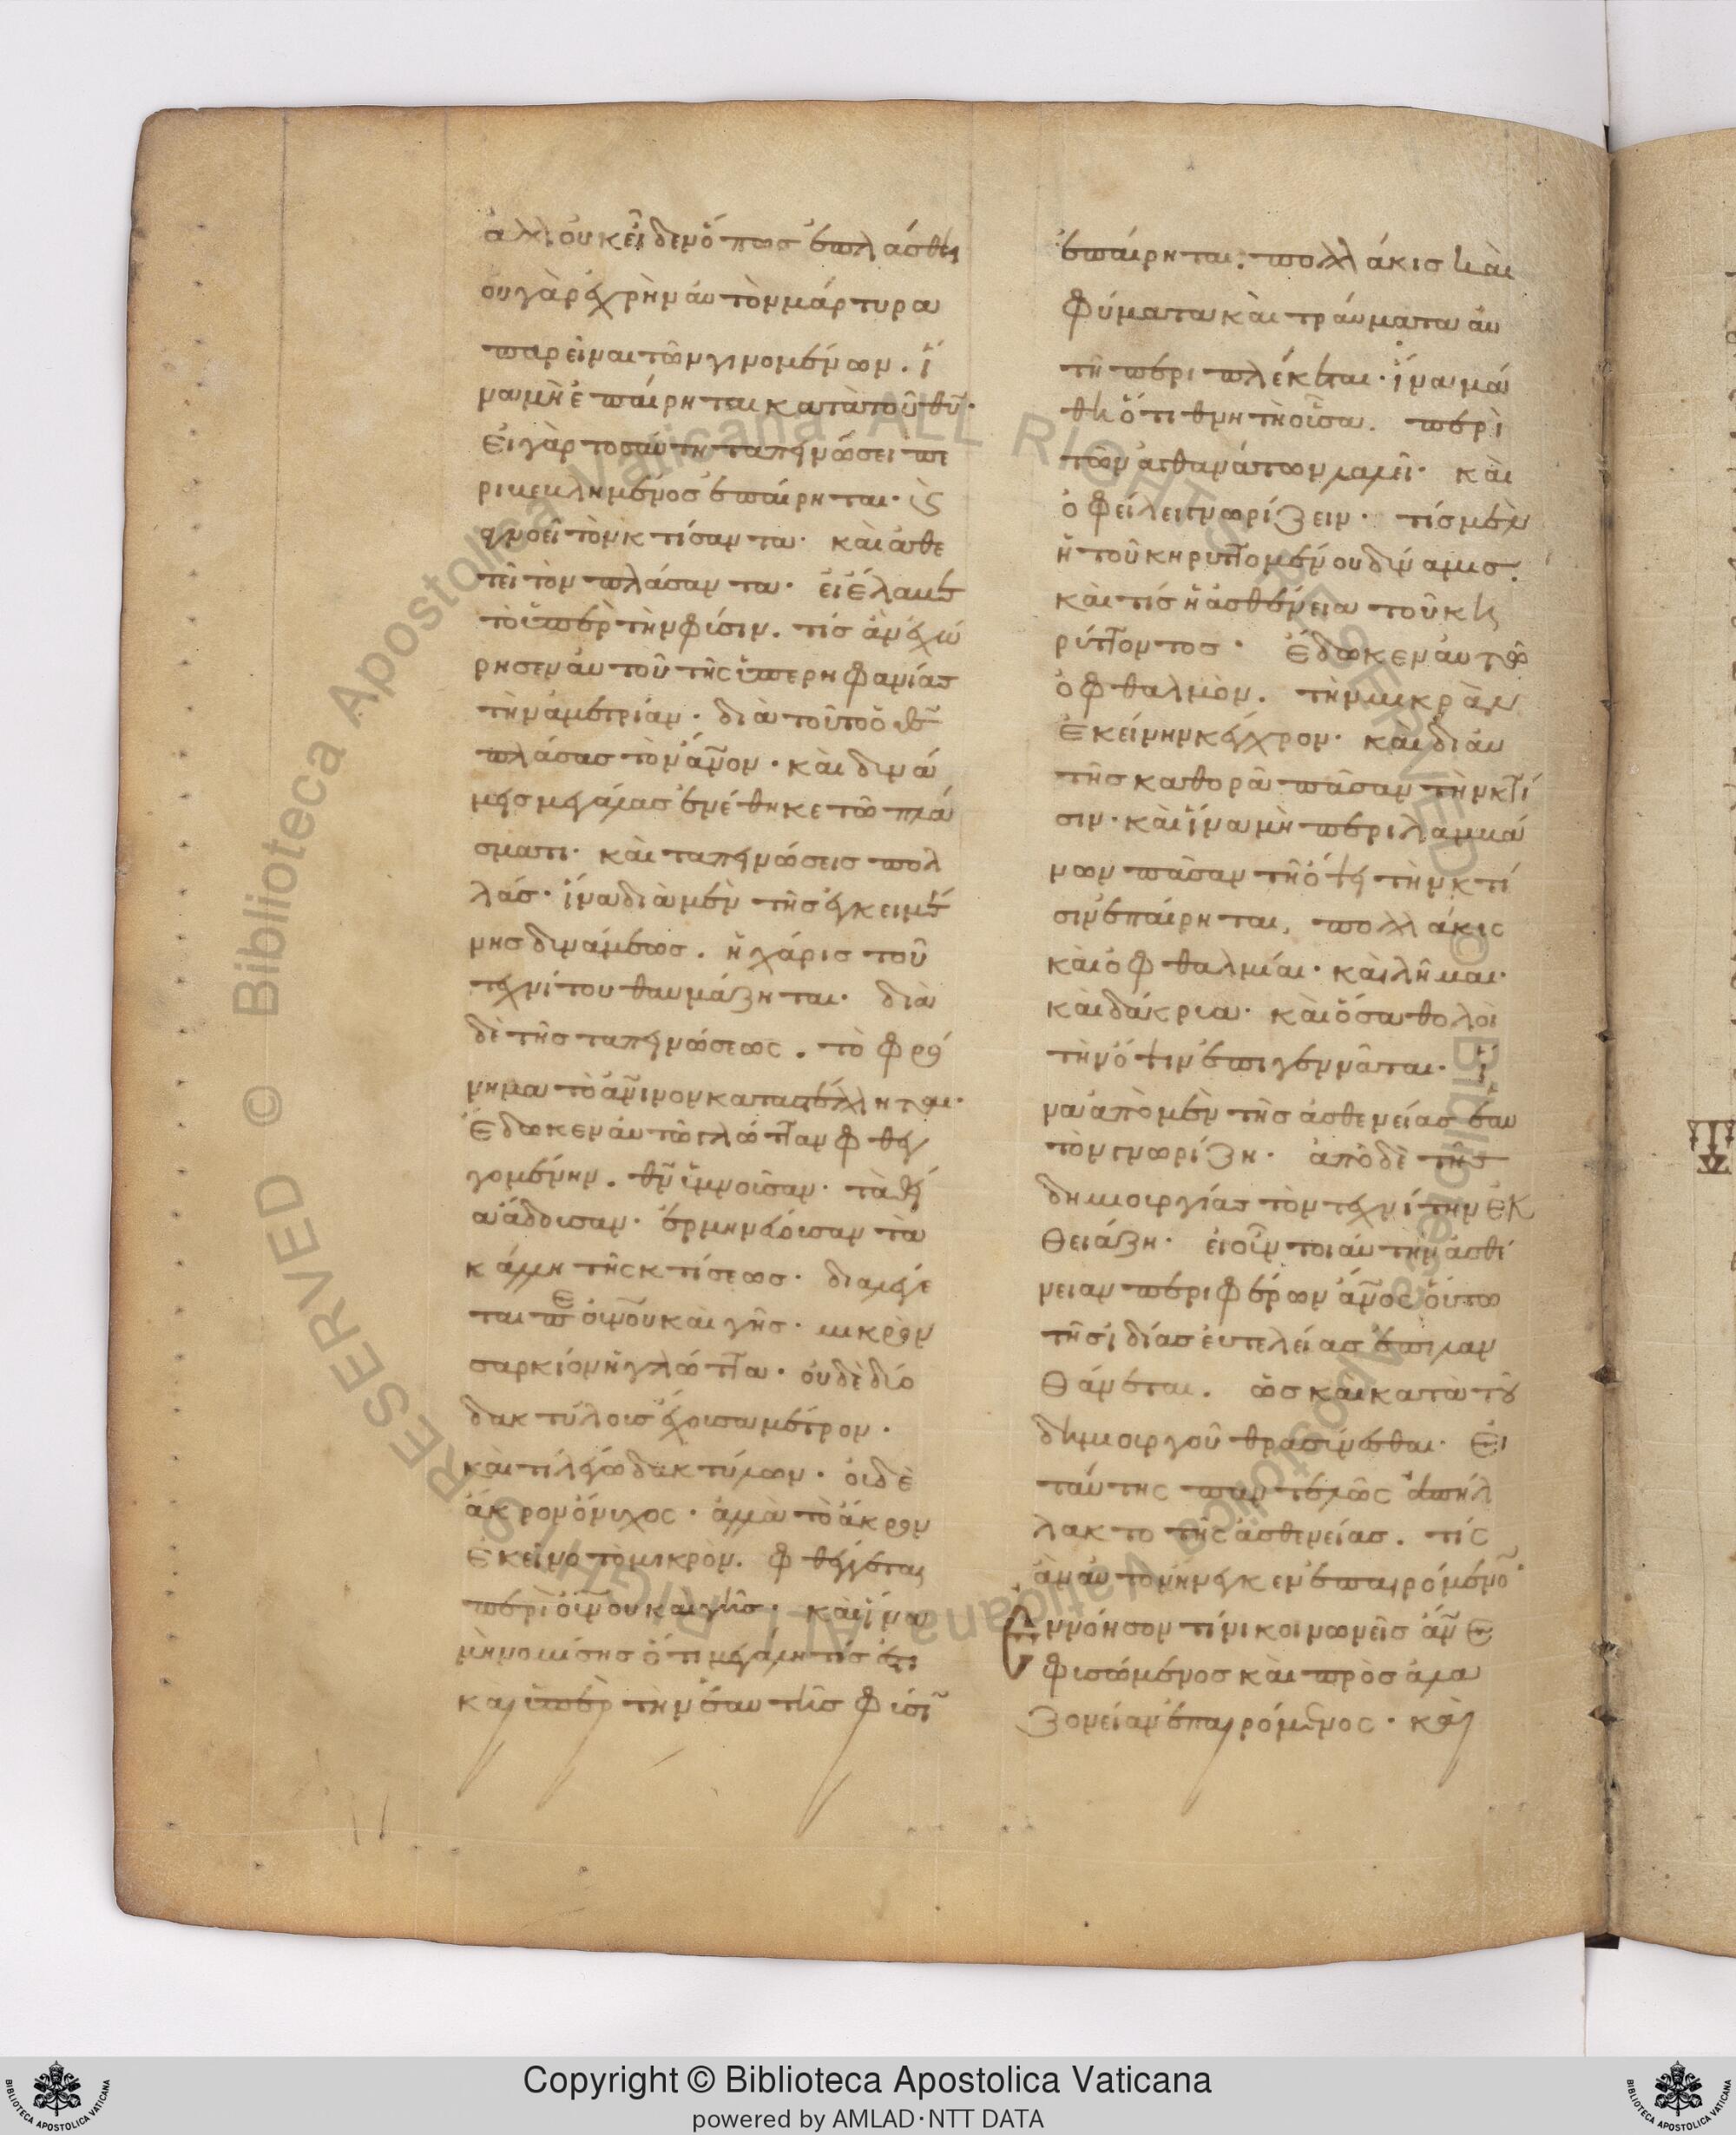 ἀλλ' οὐκ εἶδεν ὅπως ἐπλάσθη
οὐ γὰρ ἐχρῆν αὐτὸν μάρτυρα
παρεῖναι τῶν γινομένων. ἵ
να μὴ ἐπαίρηται κατὰ τοῦ θυ.
Εἰ γὰρ τοσαύτη ταπεινώσει πε
ρικεκλημένος ἐπαίρηται. κ
ἀγνοεῖ τὸν κτίσαντα. καὶ ἀθε
τεῖ τὸν πλάσαντα. εἰ ἔλαμε
τὸ ὑπὲρ τὴν φύσιν. τίς ἂν ἐχώ
ρησεν αὐτοῦ τῆς ὑπερηφανίας
τὴν ἀμετρίαν. διὰ τοῦτο ὁ θς
πλάσας τὸν ἄνον. καὶ δυνά
μεις μεγάλας ἐνέθηκε τῶ πλά
σματι. καὶ ταπεινώσεις πολ
λάς. ἵνα διὰ μὲν τῆς ἐγκειμέ
νης δυνάμεως. ἡ χάρις τοῦ
τεχνίτου θαυμάζηται. διὰ
δὲ τῆς ταπεινώσεως. τὸ φρό
νημα τὸ ἀνινον καταστέλληται.
Ἔδωκεν αὐτῶ γλῶτταν φθεγ
γομένην. θν ὑμνοῦσαν. τὰ θεῖ
α ἄδουσαν. ἑρμηνεύουσαν τὰ
κάλλη τῆς κτίσεως. διαλέγε
ται περὶ οὐνοῦ καὶ γῆς. μικρὸν
σαρκίον ἡ γλῶττα. οὐδὲ δύο
δακτύλοις ἔχουσα μέτρον.
καὶ τί λέγω δακτύλων. οὐδὲ
ἄκρον ὄνυχος. ἀλλὰ τὸ ἄκρον
ἐκεῖνο τὸ μικρὸν. φθέγγεται
περὶ οὐνοῦ καὶ γῆς. καὶ ἵνα
μὴ νομίσης ὅτι μεγάλη τίς ἐστι
καὶ ὑπὲρ τὴν ἑαυτῆς φύσιν
ἐπαίρηται. πολλάκις καὶ
φύματα καὶ τραύματα αὐ
τῆ περιπλέκεται. ἵνα μά
θη ὅτι θνητὴ οὖσα. περὶ
τῶν ἀθανάτων λαλεῖ. καὶ
ὀφείλει γνωρίζειν. τίς μὲν
ἡ τοῦ κηρυττομένου δύναμις.
καὶ τίς ἡ ἀσθένεια τοῦ κη
ρύττοντος. Ἔδωκεν αὐτῶ
ὀφθαλμὸν. τὴν μικρὰν
ἐκείνην κέγχρον. καὶ δι' αὐ
τῆς καθορᾶ πᾶσαν τὴν κτί
σιν. καὶ ἵνα μὴ περιλαμβά
νων πᾶσαν τῆ ὄψει τὴν κτί
σιν ἐπαίρηται, πολλάκις
καὶ ὀφθαλμίαι. καὶ λῆμαι.
καὶ δάκρυα. καὶ ὅσα θολοῖ
τὴν ὄψιν ἐπιγεννᾶται. ἵ
να ἀπὸ μὲν τῆς ἀσθενείας ἑαυ
τὸν γνωρίζη. ἀπὸ δὲ τῆς
δημιουργίας τὸν τεχνίτην ἐκ
θειάζη. εἰ οὖν τοιαύτην ἀσθέ
νειαν περιφέρων ἄνος οὕτω
τῆς ἰδίας εὐτελείας ἐπιλαν
θάνεται. ὡς καὶ κατὰ τοῦ
δημιουργοῦ θρασύνεσθαι. Εἰ
ταύτης παντελῶς ἀπήλ
λακτο τῆς ἀσθενείας. τίς
ἂν αὐτὸν ἤνεγκεν ἐπαιρόμενον.
Ἐννόησον τίνι κοινωνεῖς ἄνε
φυσώμενος καὶ πρὸς ἀλα
ζονείαν ἐπαιρόμενος. καὶ